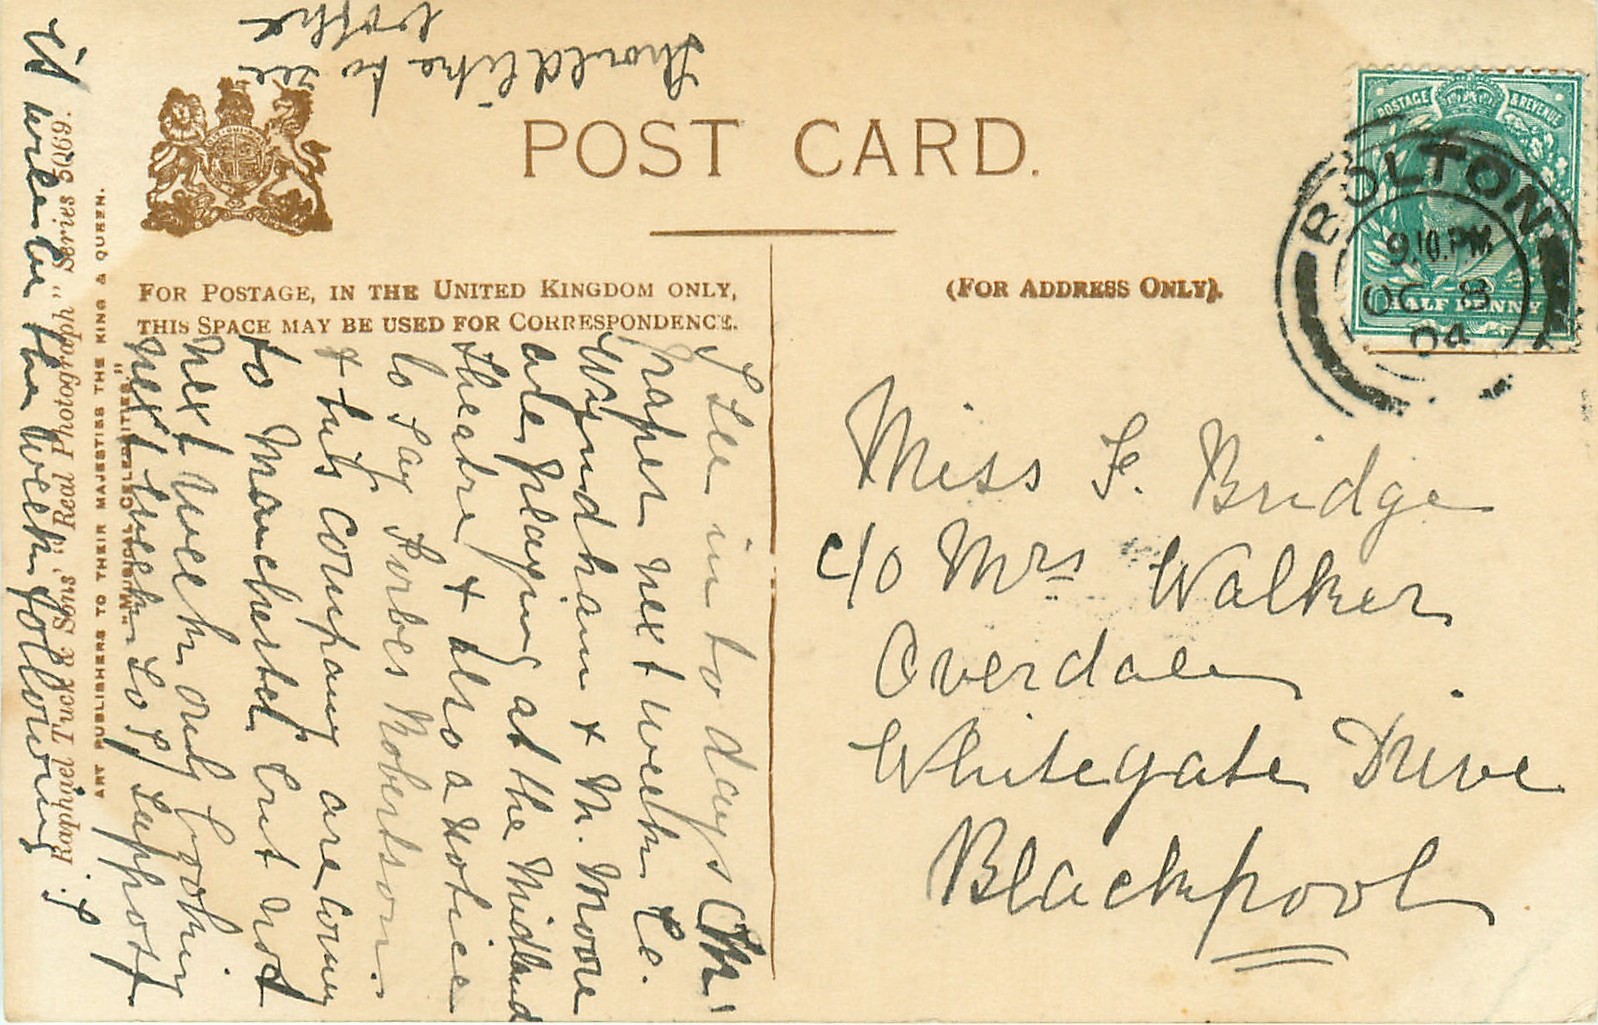 POST CARD.
FOR POSTAGE, IN THE UNITED KINGDOM ONLY,
THIS SPACE MAY BE USED FOR CORRESPONDENCE.
(FOR ADDRESS ONLY).
POSTAGE & REVENUE
HALF PENNY
BOLTON
9.10.PM
OC 8
04
Miss F. Bridge
c/o Mrs Walker
Overdale
Whitegate Drive
Blackpool
I see in to days
paper next week
Wyndham & M. Moore
are playing at the Midland
theatre & also a notice
to say Forbes Robertson
& his company are coming
to Manchester but not
next week only booking
next week so I suppose
it will be the week following
I
should like to see
Raphael Tuck & Sons' "Real Photograph" Series 5069.
ART PUBLISHERS TO THEIR MAJESTIES THE KING & QUEEN.
"MUSICAL CELEBRITIES"